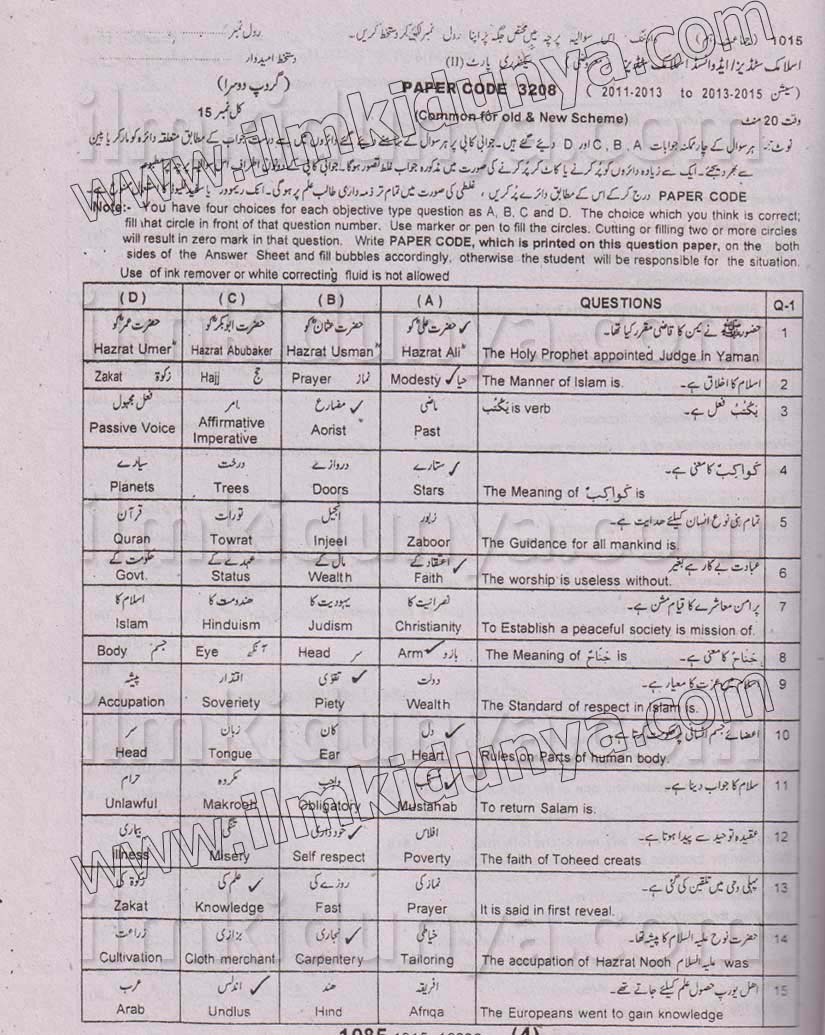 1015
رول نمبر
دستخط امیدوار
سیکنڈری پارٹ (II)
(گروپ دوسرا) PAPER CODE 3208 (سیشن 2011-2013 to 2013-2015
کل نمبر 15 (Common for old & New Scheme) وقت 20 منٹ
نوٹ:۔ ہر سوال کے چار ممکنہ جوابات A, B, C اور D دیئے گئے ہیں۔
PAPER CODE درج کر کے اس کے مطابق دائرے پُر کریں،
Note:- You have four choices for each objective type question as A, B, C and D. The choice which you think is correct;
fill that circle in front of that question number. Use marker or pen to fill the circles. Cutting or filling two or more circles
will result in zero mark in that question. Write PAPER CODE, which is printed on this question paper, on the both
sides of the Answer Sheet and fill bubbles accordingly, otherwise the student will be responsible for the situation.
Use of ink remover or white correcting fluid is not allowed
(D) (C) (B) (A) QUESTIONS Q-1
حضرت عمرؓ کو حضرت ابوبکرؓ کو حضرت عثمانؓ کو حضرت علیؓ کو حضورﷺ نے یمن کا قاضی مقرر کیا تھا۔ 1
Hazrat Umer Hazrat Abubaker Hazrat Usman Hazrat Ali The Holy Prophet appointed Judge in Yaman
Zakat زکوٰۃ Hajj حج Prayer نماز Modesty حیا The Manner of Islam is. اسلام کا اخلاق ہے۔ 2
فعل مجہول امر مضارع ماضی یَکْتُبُ is verb یَکْتُبُ فعل ہے۔ 3
Passive Voice Affirmative Imperative Aorist Past
سیارے درخت دروازے ستارے کَوَاکِبُ کا معنی ہے۔ 4
Planets Trees Doors Stars The Meaning of کَوَاکِبُ is
قرآن تورات انجیل زبور تمام بنی نوع انسان کیلئے ھدایت ہے۔ 5
Quran Towrat Injeel Zaboor The Guidance for all mankind is.
حکومت کے عہدے کے مال کے اعتقاد کے عبادت بے کار ہے بغیر 6
Govt. Status Wealth Faith The worship is useless without.
اسلام کا ھندومت کا یہودیت کا نصرانیت کا پرامن معاشرے کا قیام مشن ہے۔ 7
Islam Hinduism Judism Christianity To Establish a peaceful society is mission of.
Body جسم Eye آنکھ Head سر Arm بازو The Meaning of جَنَاحٌ is جَنَاحٌ کا معنی ہے۔ 8
پیشہ اقتدار تقوٰی دولت اسلام میں عزت کا معیار ہے۔ 9
Accupation Soveriety Piety Wealth The Standard of respect in Islam is.
سر زبان کان دل اعضائے جسم انسانی پر حکومت کرتا ہے۔ 10
Head Tongue Ear Heart Rules on Parts of human body.
حرام مکروہ واجب سلام کا جواب دینا ہے۔ 11
Unlawful Makrooh Obligatory Mustahab To return Salam is.
بیماری تنگی خودداری افلاس عقیدہ توحید سے پیدا ہوتا ہے۔ 12
Illness Misery Self respect Poverty The faith of Toheed creats
زکوٰۃ کی علم کی روزے کی نماز کی پہلی وحی میں تلقین کی گئی ہے۔ 13
Zakat Knowledge Fast Prayer It is said in first reveal.
زراعت بزازی نجاری خیاطی حضرت نوح علیہ السلام کا پیشہ تھا۔ 14
Cultivation Cloth merchant Carpentery Tailoring The accupation of Hazrat Nooh علیہ السلام was
عرب اندلس ھند افریقہ اھل یورپ حصول علم کیلئے جاتے تھے۔ 15
Arab Undlus Hind Afriqa The Europeans went to gain knowledge
(4)
www.ilmkidunya.com
www.ilmkidunya.com
ilmkidunya.com
ilmkidunya.com
ilmkidunya.com
ilmkidunya.com